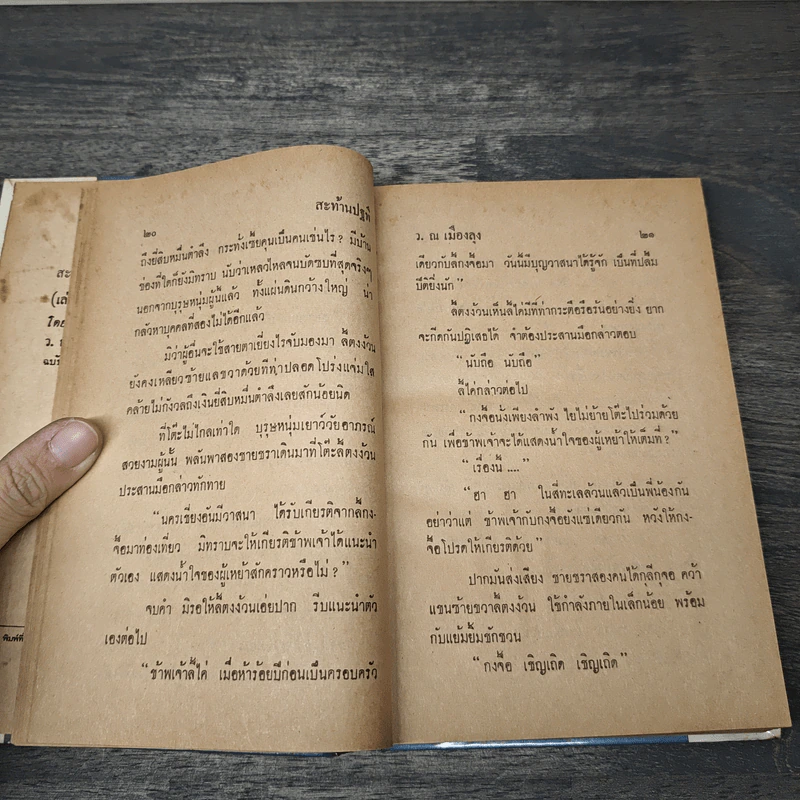 สะ
(เล่
โดย
ว. ณ
ฉบับ
พิมพ์ที่
สะท้านปฐพี
๒๐
ถึงยี่สิบหมื่นตำลึง กระทั่งเซี้ยคุนเป็นคนเช่นไร? มีบ้าน
ช่องที่ใดก็ยังมิทราบ นับว่าเหลวไหลจนบัดซบที่สุดจริงๆ
นอกจากบุรุษหนุ่มผู้นั้นแล้ว ทั้งแผ่นดินกว้างใหญ่ น่า
กลัวหาบุคคลที่สองไม่ได้อีกแล้ว
มิว่าผู้อื่นจะใช้สายตาเยี่ยงไรจับมองมา ลี้ตงง้วน
ยังคงเหลียวซ้ายแลขวาด้วยทีท่าปลอดโปร่งแจ่มใส
คล้ายไม่กังวลถึงเงินยี่สิบหมื่นตำลึงเลยสักน้อยนิด
ที่โต๊ะไม่ไกลเท่าใด บุรุษหนุ่มเยาว์วัยอาภรณ์
สวยงามผู้นั้น พลันพาสองชายชราเดินมาที่โต๊ะลี้ตงง้วน
ประสานมือกล่าวทักทาย
“นครเชี่ยงอันมีวาสนา ได้รับเกียรติจากลี้กง-
จื้อมาท่องเที่ยว มิทราบจะให้เกียรติข้าพเจ้าได้แนะนำ
ตัวเอง แสดงน้ำใจของผู้เหย้าสักคราวหรือไม่?”
จบคำ มิรอให้ลี้ตงง้วนเอ่ยปาก รีบแนะนำตัว
เองต่อไป
“ข้าพเจ้าลี้ไค่ เมื่อห้าร้อยปีก่อนเป็นครอบครัว
ว. ณ เมืองลุง
๒๑
เดียวกับลี้กงจื้อมา วันนี้มีบุญวาสนาได้รู้จัก เป็นที่ปลื้ม
ปีติยิ่งนัก”
ลี้ตงง้วนเห็นลี้ไค่มีทีท่ากระตือรือร้นอย่างยิ่ง ยาก
จะกีดกันปฏิเสธได้ จำต้องประสานมือกล่าวตอบ
“นับถือ นับถือ”
ลี้ไค่กล่าวต่อไป
“กงจื้อนั่งเพียงลำพัง ไยไม่ย้ายโต๊ะไปร่วมด้วย
กัน เพื่อข้าพเจ้าจะได้แสดงน้ำใจของผู้เหย้าให้เต็มที่?”
“เรื่องนี้ ....”
“ฮา ฮา ในสี่ทะเลล้วนแล้วเป็นพี่น้องกัน
อย่าว่าแต่ ข้าพเจ้ากับกงจื้อยังแซ่เดียวกัน หวังให้กง-
จื้อโปรดให้เกียรติด้วย”
ปากมันส่งเสียง ชายชราสองคนได้กุลีกุจอ คว้า
แขนซ้ายขวาลี้ตงง้วน ใช้กำลังภายในเล็กน้อย พร้อม
กับแย้มยิ้มชักชวน
“กงจื้อ เชิญเถิด เชิญเถิด”